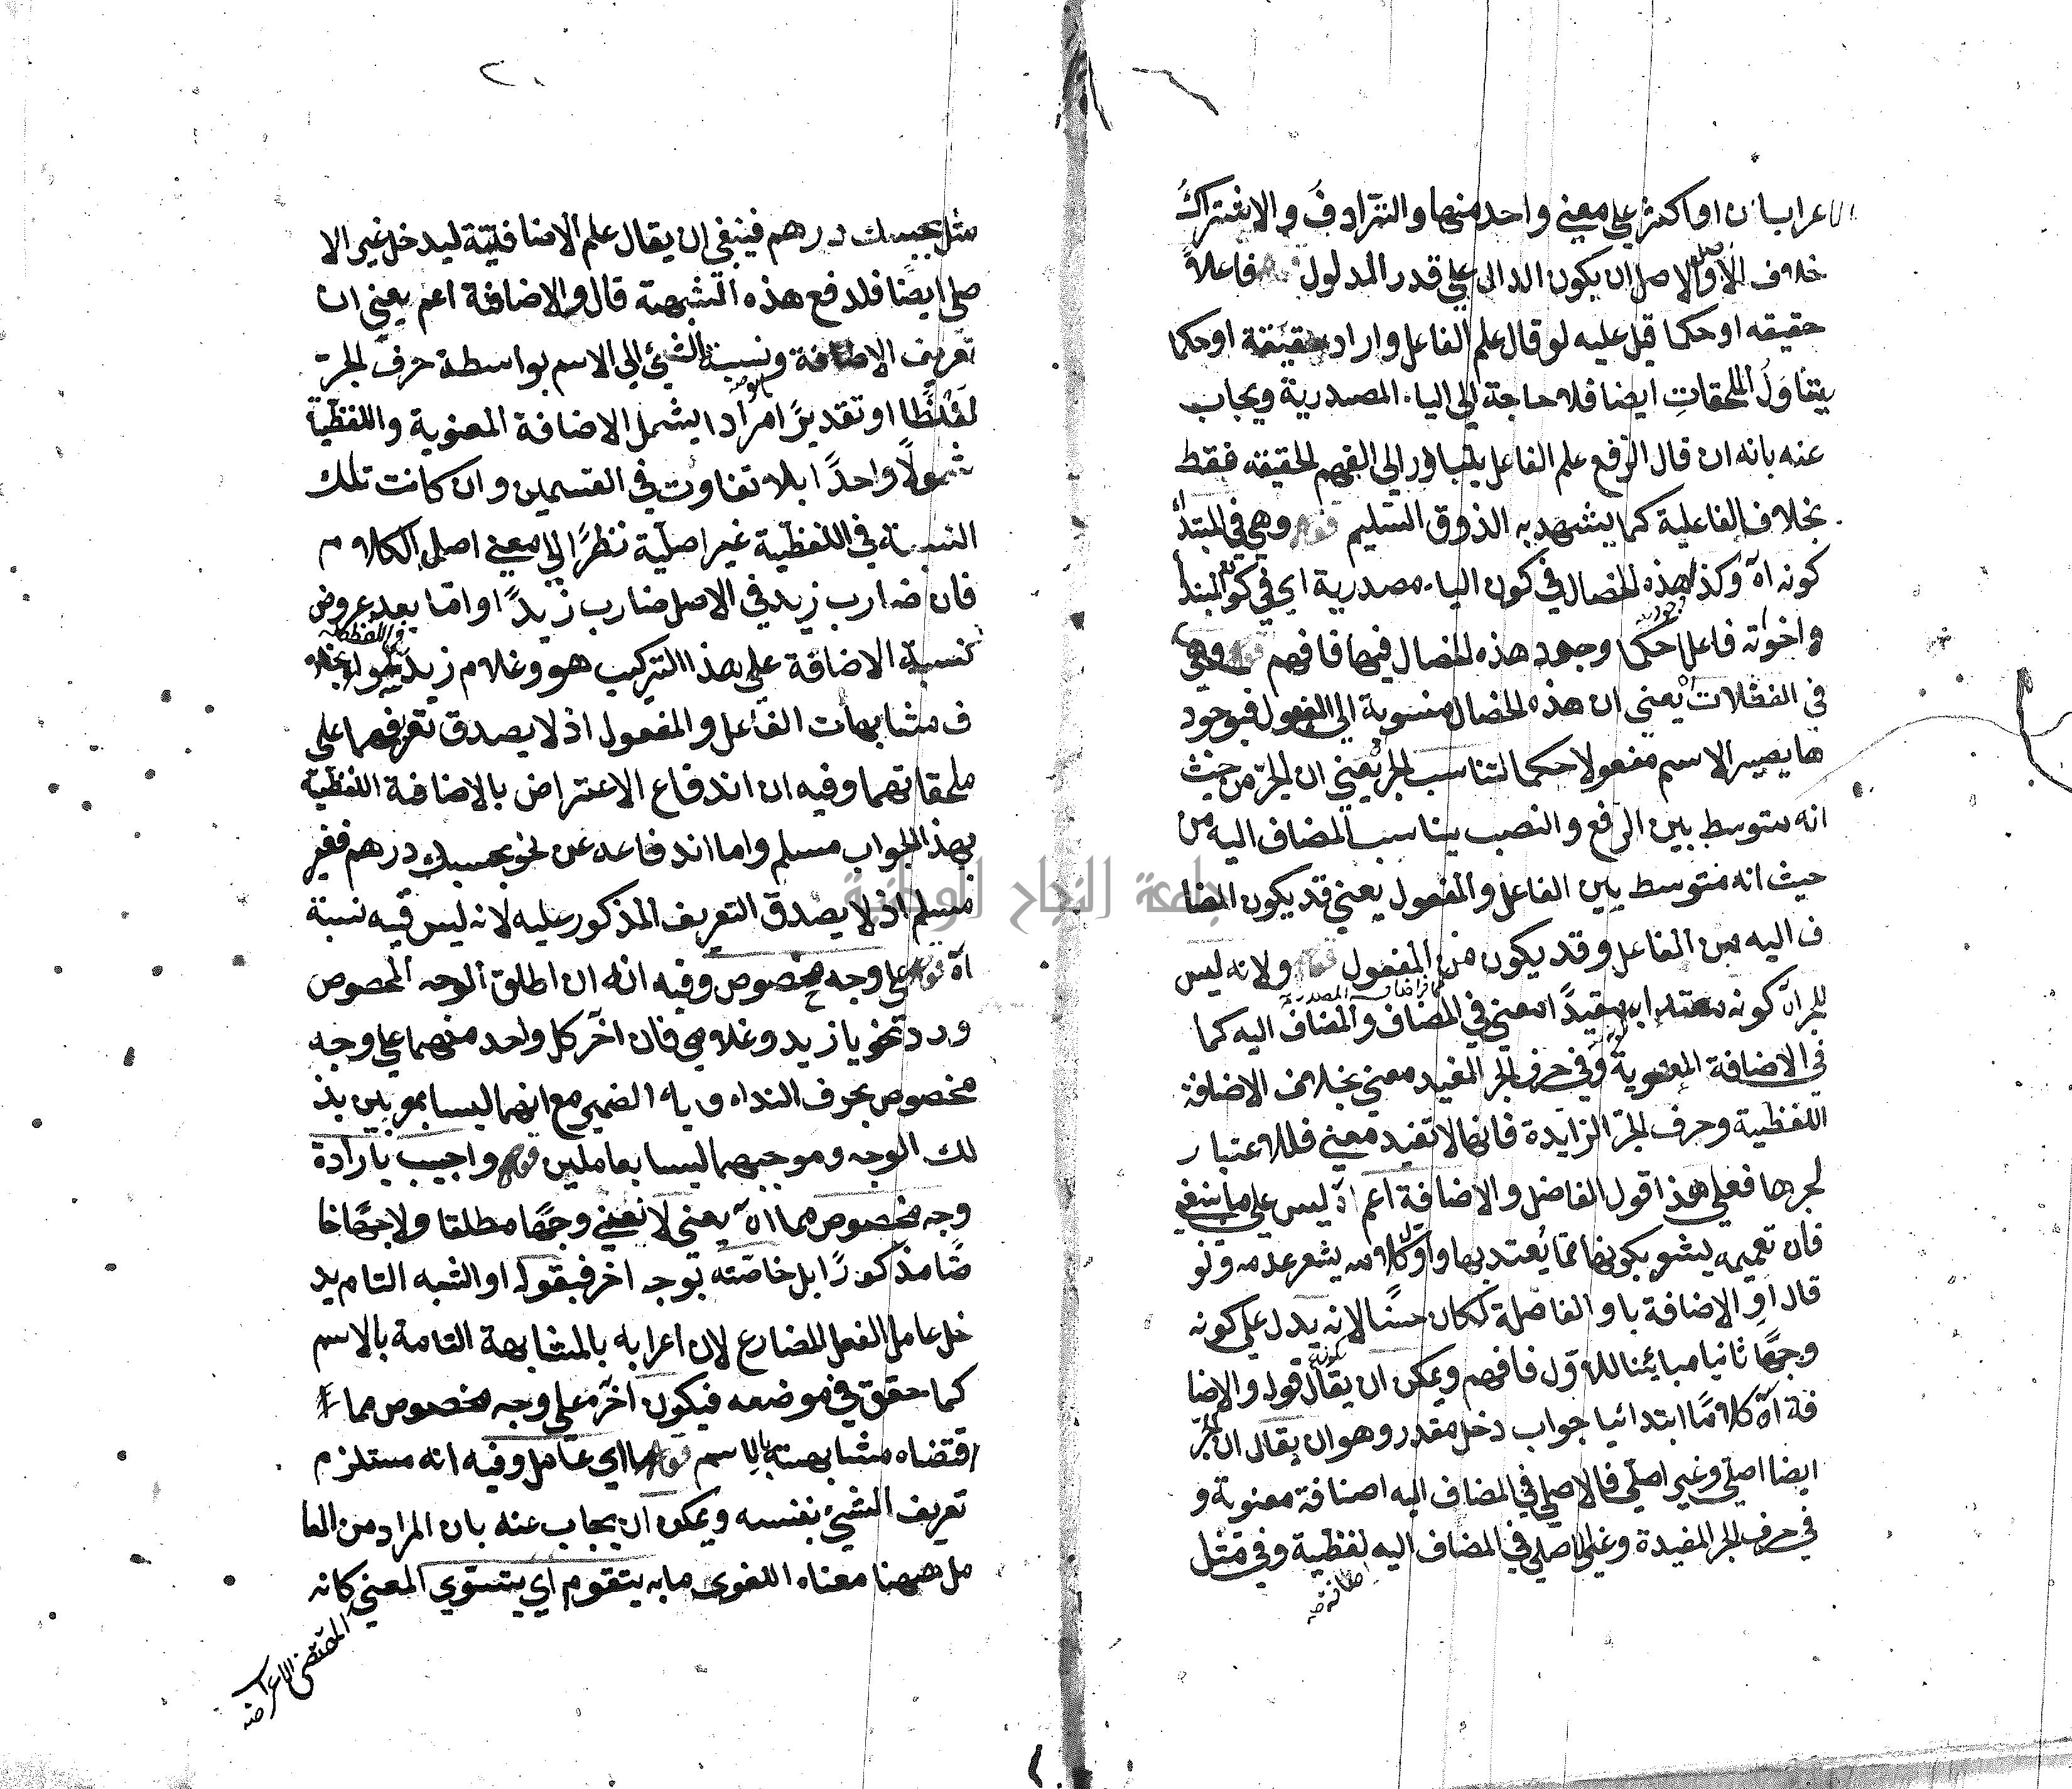 الاعرابان او اكثر علي معني واحد منها والترادف والاشتراك
خلاف الاصل والاصل ان يكون الدال علي قدر المدلول قوله فاعلاً
حقيقه او حكما قيل عليه لو قال علم الفاعل واراد حقيقة او حكما
يتناول الملحقات ايضا فلا حاجة الي الياء المصدرية ويجاب
عنه بانه ان قال الرفع علم الفاعل يتبادر الي الفهم الحقيقه فقط
بخلاف الفاعلية كما يشهد به الذوق السليم قوله وهي في المبتدأ
كونه اه وكذا هذه الخصال في كون الياء مصدرية اي في كون المبتدأ
واخواته فاعلا حكما وجود هذه الخصال فيها فافهم قوله وهي
في الفضلات يعني ان هذه الخصال منسوبة الي المفعول فبوجود
ها يصير الاسم مفعولا حكما لتناسب الجر يعني ان الجر من حيث
انه متوسط بين الرفع والنصب يناسب المضاف اليه من
حيث انه متوسط بين الفاعل والمفعول يعني قد يكون المضا
ف اليه من الفاعل وقد يكون من المفعول قوله ولانه ليس
للجر اه كونه معتدا به مقيداً لمعني في المضاف والمضاف اليه كما
في الاضافة المعنوية وفي حرف الجر المفيد معني بخلاف الاضافة
اللفظية وحرف الجر الزايدة فانها لا تفيد معني فلا اعتبار
لجرها فعلي هذا قول الفاضل والاضافة اعم اه ليس علي ما ينبغي
فان تعميمه يشعر بكونها مما يعتد بها واول كلامه يشعر عدمه ولو
قال او الاضافة باو الفاصلة لكان حسنا لانه يدل علي كونه
وجها ثانيا مبائنا للاول فافهم ويمكن ان يقال قوله والاضا
فة اه كلاما ابتدائيا جواب دخل مقدر وهو ان يقال ان الجر
ايضا اصلي وغير اصلي فالاصلي في المضاف اليه اضافة معنوية و
في حرف الجر المفيدة وغير الاصلي في المضاف اليه لفظية وفي مثل
اضافة صح
٢٠
مثل بحسبك درهم فينبغي ان يقال علم الاضافية ليدخل غير الا
صلي ايضا فلدفع هذه الشبهة قال والاضافة اعم يعني ان
تعريف الاضافة ونسبة الشئ الي الاسم بواسطة حرف الجر
لفظا او تقديرً امرادا يشمل الاضافة المعنوية واللفظية
شمولاً واحداً بلا تفاوت في القسمين وان كانت تلك
النسبة في اللفظية غير اصلية نظرًا الي معني اصل الكلام
فان ضارب زيد في الاصل ضارب زيدًا واما بعد عروض
نسبة الاضافة علي هذا التركيب هو وغلام زيد سواء بخلا
في اللفظ صح
ف مشابهات الفاعل والمفعول اذ لا يصدق تعريفهما علي
ملحقاتهما وفيه ان اندفاع الاعتراض بالاضافة اللفظية
بهذا الجواب مسلم واما اندفاعه عن نحو بحسبك درهم فغير
مسلم اذ لا يصدق التعريف المذكور عليه لانه ليس فيه نسبة
اه قوله علي وجه مخصوص وفيه انه ان اطلق الوجه المخصوص
ورد نحو يا زيد وغلامي فان آخر كل واحد منهما علي وجه
مخصوص بحرف النداء وياء الضمير مع انهما ليسا بمعربين بذ
لك الوجه وموجبهما ليسا بعاملين قوله واجيب بارادة
وجه مخصوص مما اه يعني لا نعني وجها مطلقا ولا وجها خا
صًا مذكورًا بل خاصته بوجه اخر فبقوله او الشبه التام يد
خل عامل الفعل المضارع لان اعرابه بالمشابهة التامة بالاسم
كما حقق في موضعه فيكون اخره علي وجه مخصوص مما
اقتضاه مشابهته بالاسم قوله ما اي عامل وفيه انه مستلزم
تعريف الشئ بنفسه ويمكن ان يجاب عنه بان المراد من العا
مل ههنا معناه اللغوي ما به يتقوم اي يستوي المعني كانه
المقتضي للاعراب صح
جامعة النجاح الوطنية